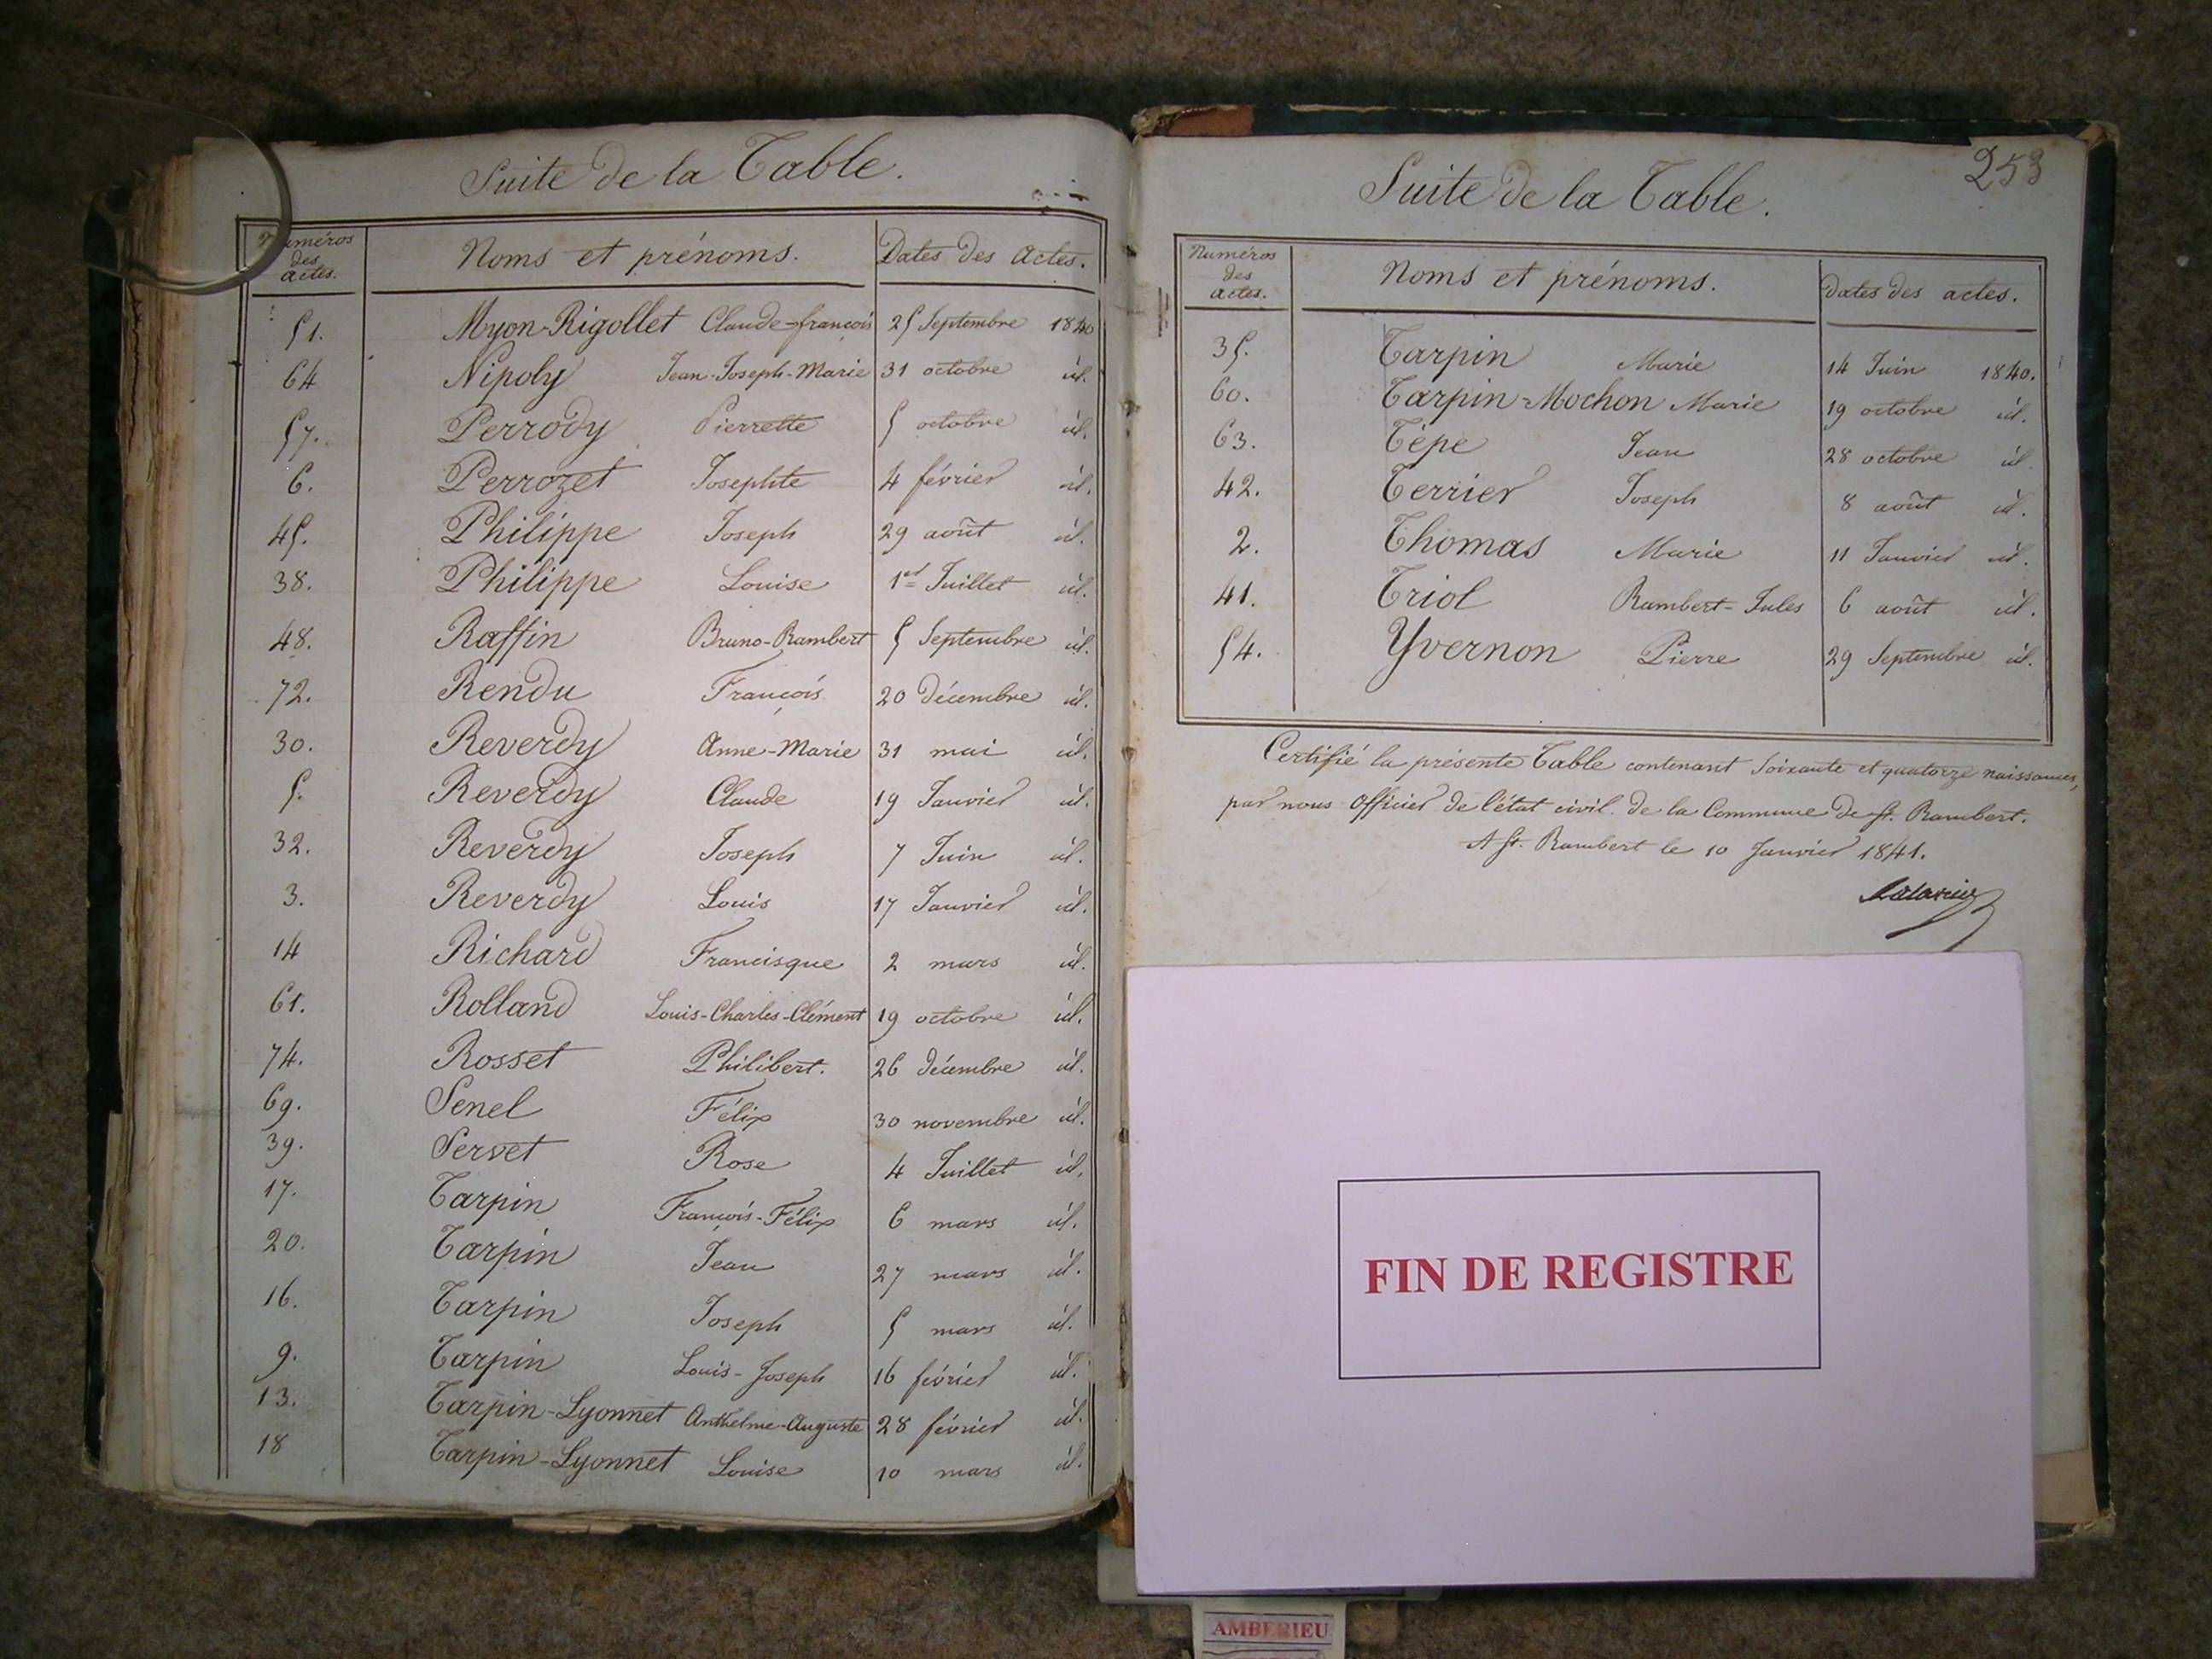 Suite de la Table.
Numéros des actes. Noms et prénoms. Dates des Actes.
51. Myon-Rigollet Claude-françois 25 Septembre 1840
64 Nipoly Jean-Joseph-Marie 31 octobre id.
57. Perrody Pierrette 5 octobre id.
6. Perrozet Josephte 4 février id.
45. Philippe Joseph 29 août id.
38. Philippe Louise 1er Juillet id.
48. Raffin Bruno-Rambert 5 Septembre id.
72. Rendu François 20 décembre id.
30. Reverdy Anne-Marie 31 mai id.
5. Reverdy Claude 19 Janvier id.
32. Reverdy Joseph 7 Juin id.
3. Reverdy Louis 17 Janvier id.
14 Richard Francisque 2 mars id.
61. Rolland Louis-Charles-Clément 19 octobre id.
74. Rosset Philibert. 26 décembre id.
69. Senel Félix 30 novembre id.
39. Servet Rose 4 Juillet id.
17. Tarpin François-Félix 6 mars id.
20. Tarpin Jean 27 mars id.
16. Tarpin Joseph 5 mars id.
9. Tarpin Louis-Joseph 16 février id.
13. Tarpin-Lyonnet Anthelme-Auguste 28 février id.
18 Tarpin-Lyonnet Louise 10 mars id.
253
Suite de la Table.
Numéros des actes. Noms et prénoms. Dates des actes.
35. Tarpin Marie 14 Juin 1840.
60. Tarpin-Mochon Marie 19 octobre id.
63. Tépe Jean 28 octobre id.
42. Terrier Joseph 8 août id.
2. Thomas Marie 11 Janvier id.
41. Triol Rambert-Jules 6 août id.
54. Yvernon Pierre 29 Septembre id.
Certifié la présente Table contenant soixante et quatorze naissances,
par nous Officier de l'état civil de la Commune de St. Rambert.
A St. Rambert le 10 Janvier 1841.
FIN DE REGISTRE
AMBERIEU